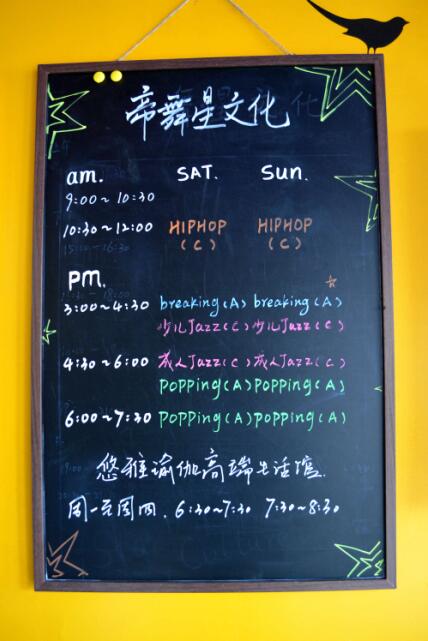 帝舞星文化
am. SAT. Sun.
9:00~10:30
10:30~12:00 HIPHOP HIPHOP
(C) (C)
PM.
3:00~4:30 breaking(A) breaking(A)
少儿Jazz(C) 少儿Jazz(C)
4:30~6:00 成人Jazz(C) 成人Jazz(C)
POPPing(A) POPPing(A)
6:00~7:30 POPPing(A) POPPing(A)
悠雅瑜伽高端生活馆.
周一至周四. 6:30~7:30 7:30~8:30